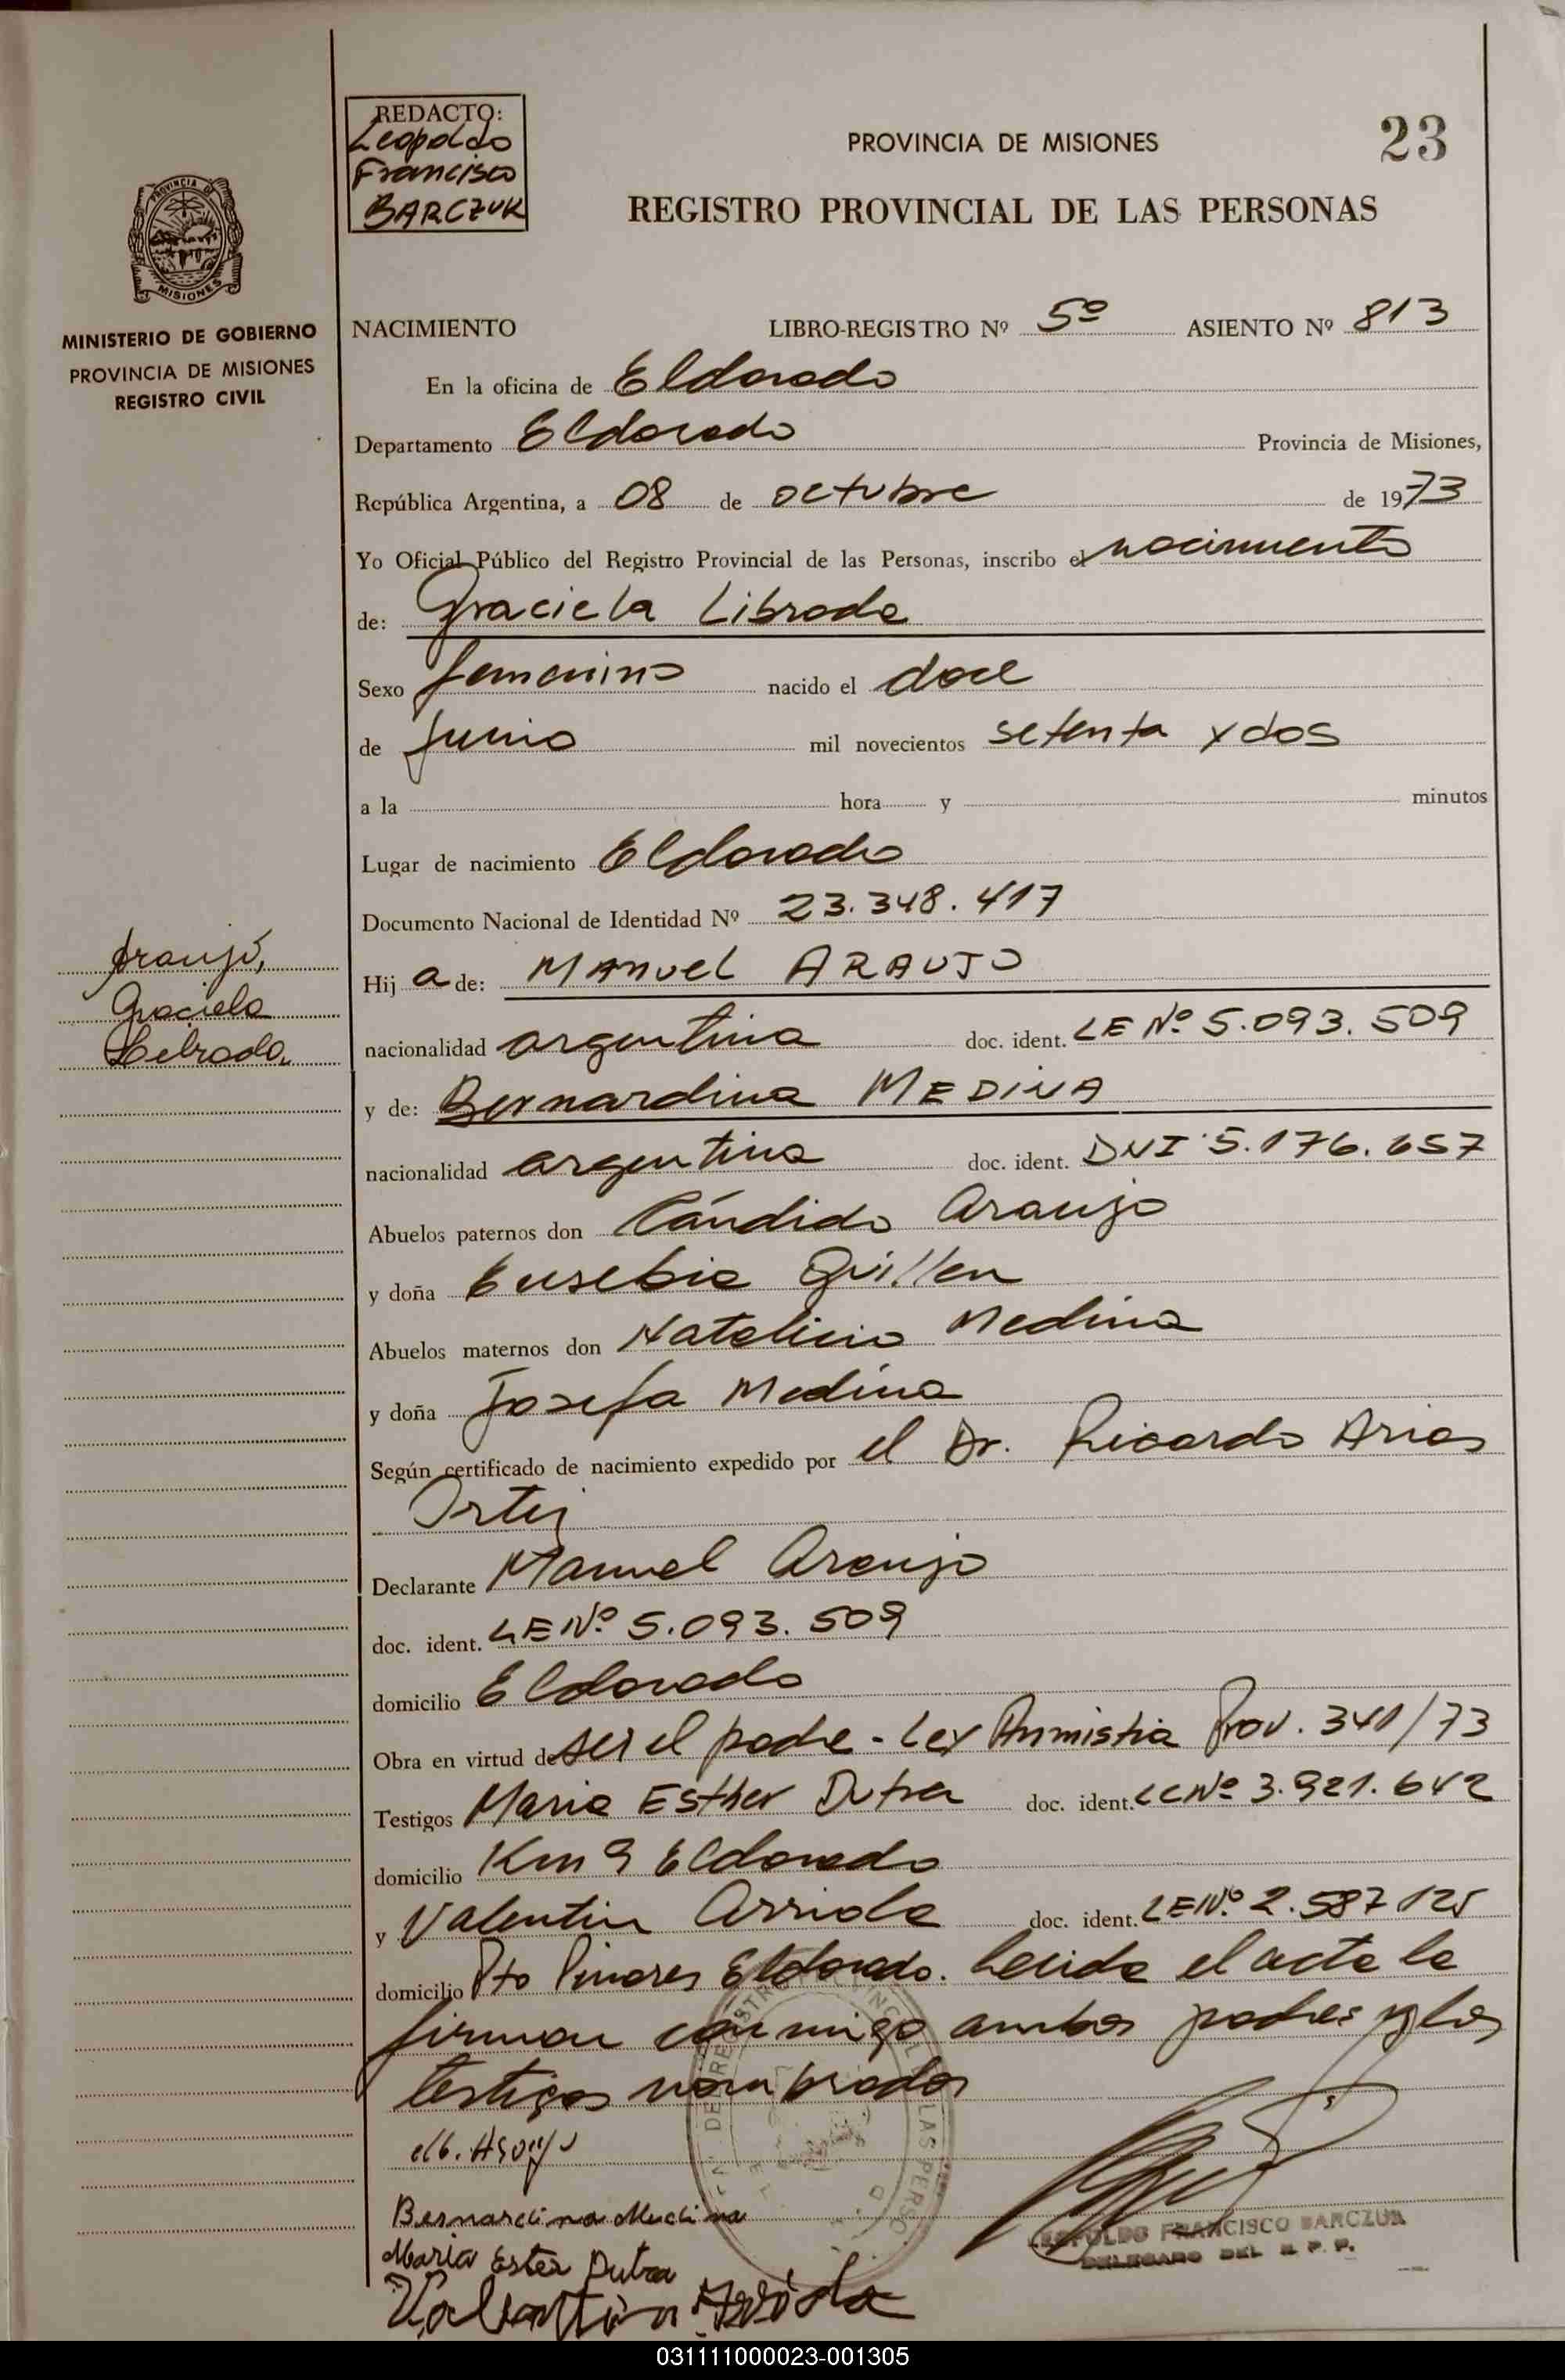 REDACTO:
Leopoldo
Francisco
BARCZUK
PROVINCIA DE MISIONES
23
REGISTRO PROVINCIAL DE LAS PERSONAS
PROVINCIA DE
MISIONES
MINISTERIO DE GOBIERNO
PROVINCIA DE MISIONES
REGISTRO CIVIL
NACIMIENTO LIBRO-REGISTRO Nº 5º ASIENTO Nº 813
En la oficina de Eldorado
Departamento Eldorado Provincia de Misiones,
República Argentina, a 08 de octubre de 1973
Yo Oficial Público del Registro Provincial de las Personas, inscribo el nacimiento
de: Graciela Librada
Sexo femenino nacido el doce
de Junio mil novecientos setenta y dos
a la hora y minutos
Lugar de nacimiento Eldorado
Documento Nacional de Identidad Nº 23.348.417
Araujo,
Graciela
Librada
Hij a de: Manuel ARAUJO
nacionalidad argentina doc. ident. LE Nº 5.093.509
y de: Bernardina MEDINA
nacionalidad argentina doc. ident. DNI 5.176.657
Abuelos paternos don Cándido Araujo
y doña Eusebia Guillen
Abuelos maternos don Natalicio Medina
y doña Josefa Medina
Según certificado de nacimiento expedido por el Dr. Ricardo Arias
Ortiz
Declarante Manuel Araujo
doc. ident. LE Nº 5.093.509
domicilio Eldorado
Obra en virtud de ser el padre - Ley Anmistia Prov. 341/73
Testigos Maria Esther Dutra doc. ident. LC Nº 3.921.642
domicilio Km 9 Eldorado
y Valentin Arriola doc. ident. LE Nº 2.587.125
domicilio Pto Pinares Eldorado. Leida el acta la
firman conmigo ambos padres y los
testigos nombrados
Bernardina Medina
Maria Ester Dutra
Valentin Arriola
LEOPOLDO FRANCISCO BARCZUK
DELEGADO DEL R. P. P.
031111000023-001305